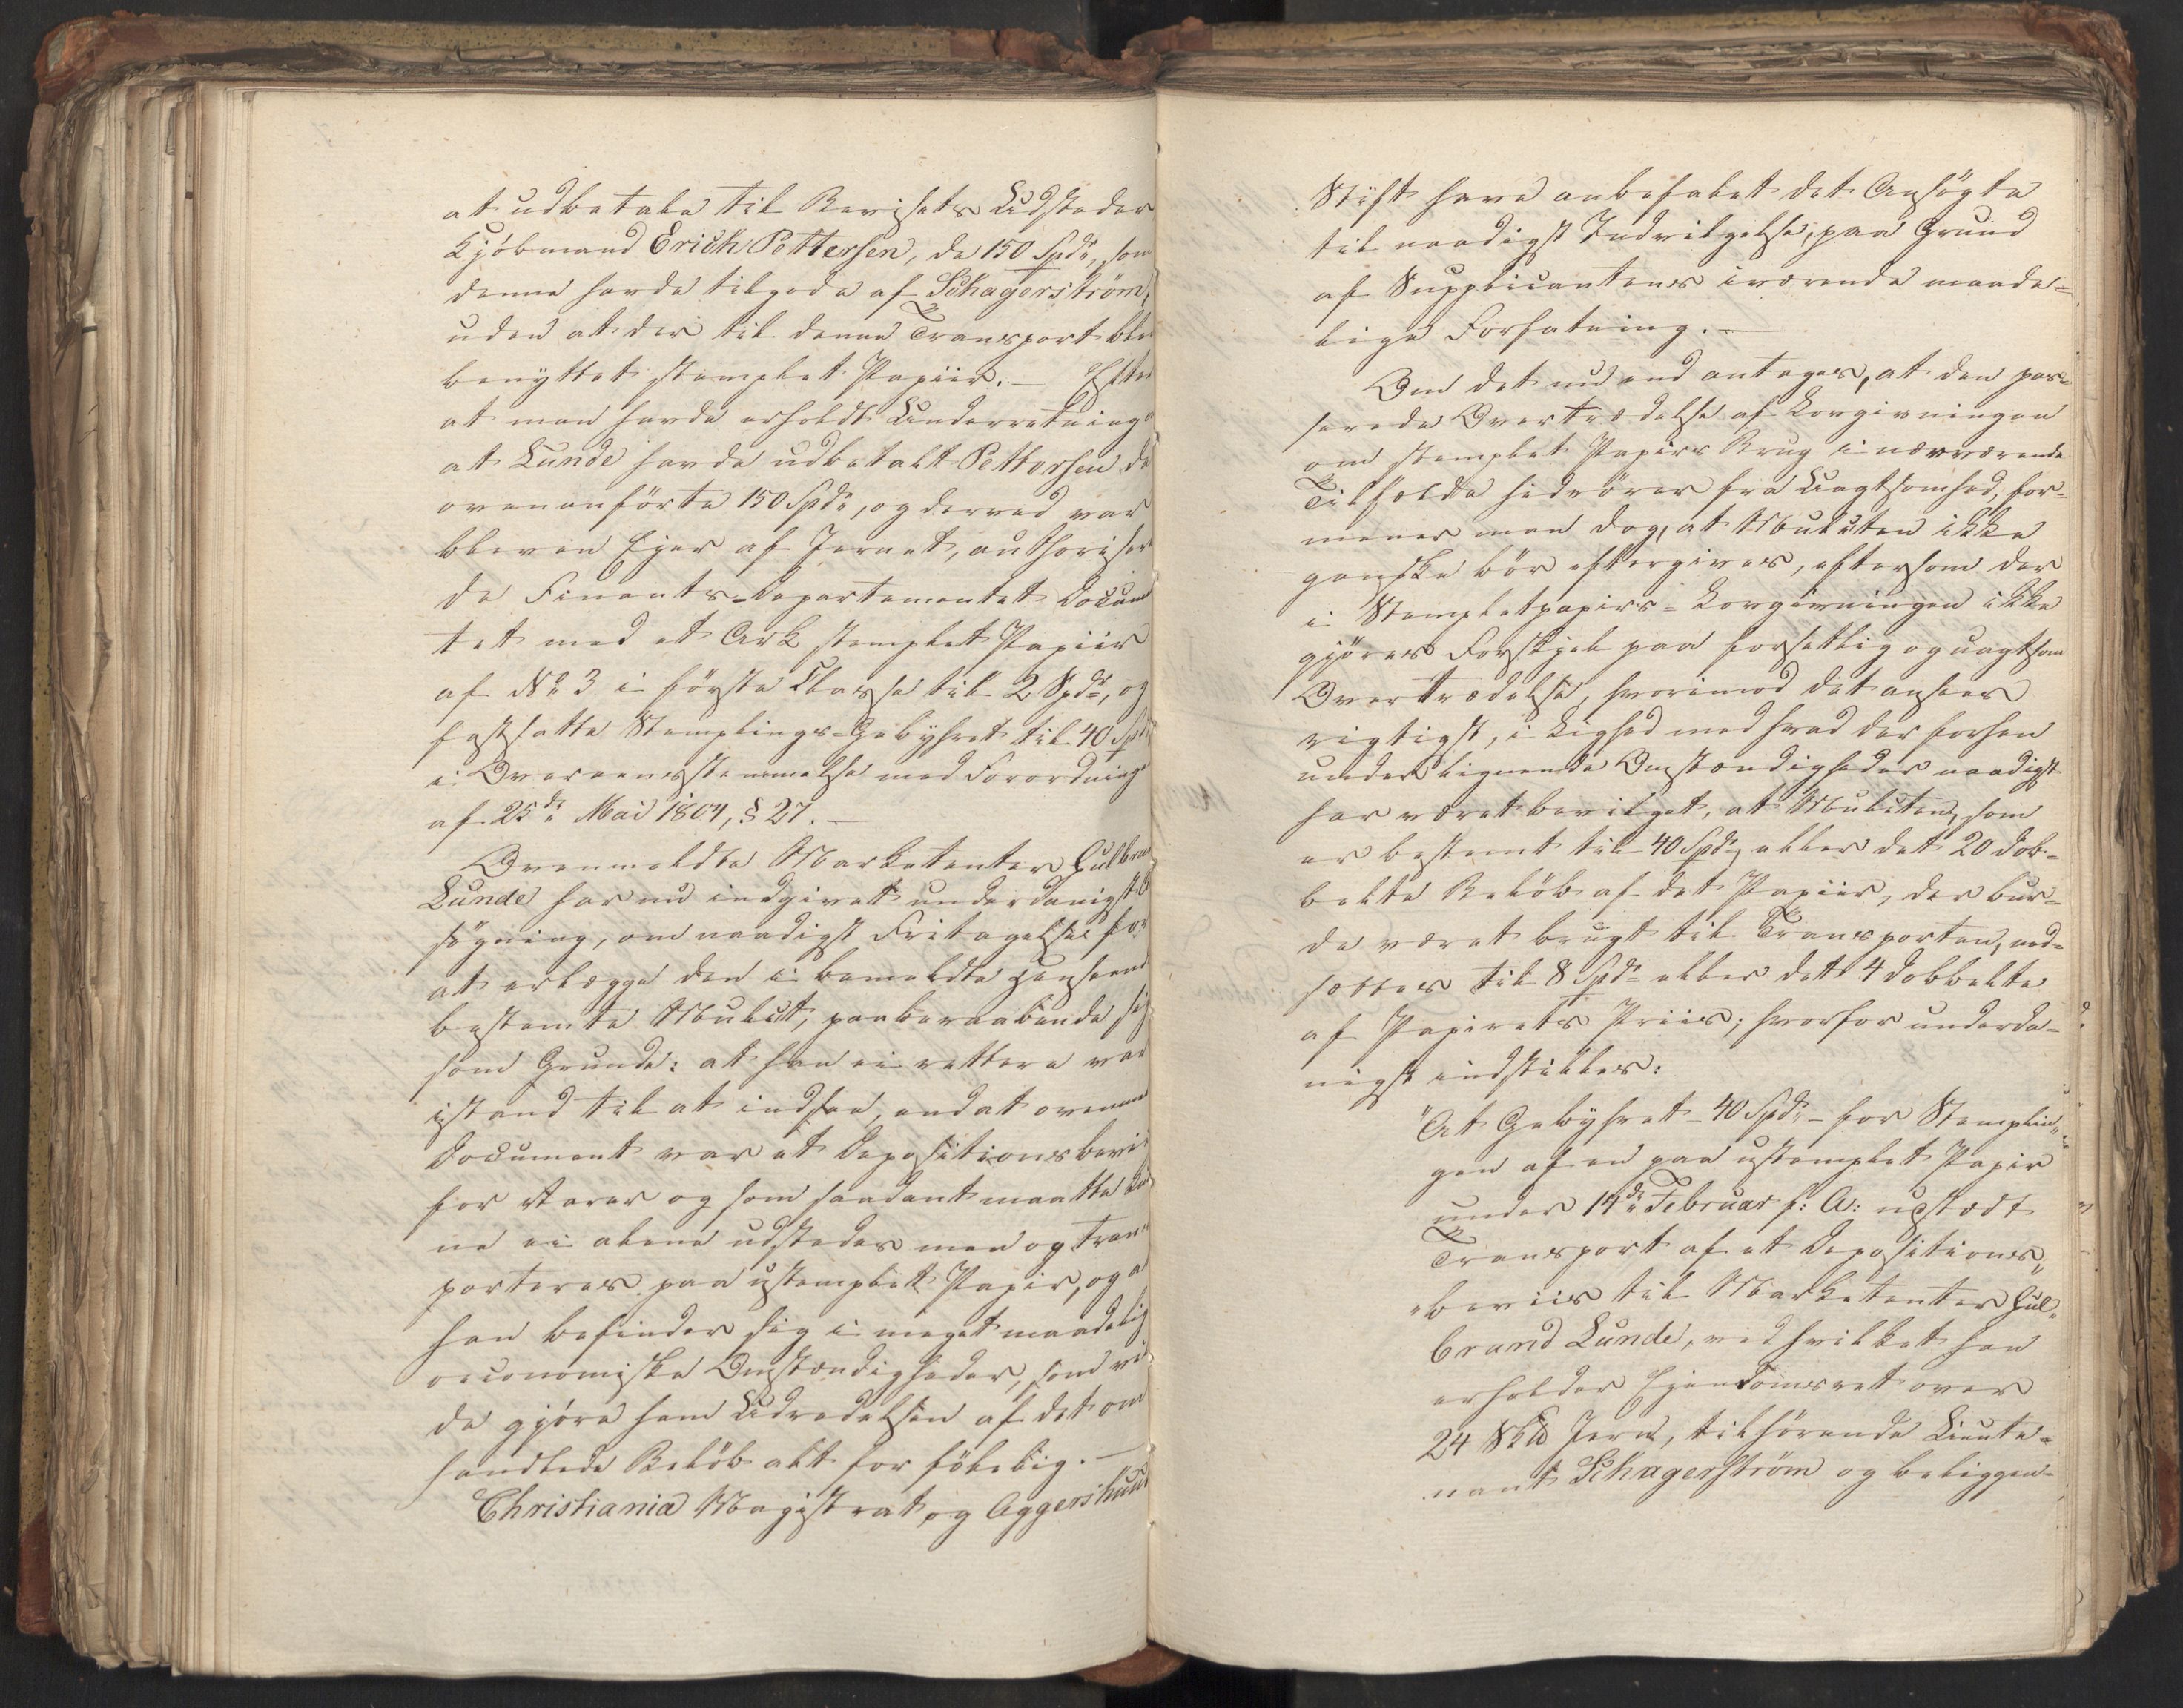 at udbetale til Bevisets Udsteder
Kjöbmand Erich Pettersen, de 150 Spdr, som
denne havde tilgode af Schagerström,
uden at der til denne Transport blev
benyttet stemplet Papiir. — Efter
at man havde erholdt Underretning
at Lunde havde udbetalt Pettersen de
ovenanförte 150 Spdr, og derved var
bleven Ejer af Jernet, authorisere-
de Finants-Departementet Docum
tet med et Ark stemplet Papiir
af No 3 i förste Classe til 2 Spdr, og
fastsatte Stemplings-Gebyhret til 40 Spdr
i Overeensstemmelse med Forordninge
af 25de Mai 1804, § 27. —
Ovenmeldte Marketenter Gulbran
Lunde har nu indgivet underdanigst A
sögning, om naadigst Fritagelse for
at erlægge den i bemeldte Henseend
bestemte Mulct, paaberaabende sig
som Grunde: at han ei rettere var
istand til at indsee, end at ovenme
Document var et Depositionsbeviis
for Varer og som saadant maatte kun
ne ei alene udstedes men og trans
porteres paa ustemplet Papir, og a
han befinder sig i meget maadelig
oeconomiske Omstændigheder, som vil
de gjöre ham Udredelsen af det om
handlede Belöb alt for fölelig. —
Christiania Magistrat og Aggershuus
Stift have anbefalet det Ansögte
til naadigst Indvilgelse, paa Grund
af Supplicantens iværende maade=
lige Forfatning. —
Om det nu end antages, at den pas=
serede Overtrædelse af Lovgivningen
om stemplet Papirs Brug i nærværende
Tilfælde hidrörer fra Uagtsomhed, for=
mener man dog, at Mulcten ikke
ganske bör eftergives, eftersom der
i Stempletpapirs=Lovgivningen ikke
gjöres Forskjel paa forsætlig og uagtsom
Overtrædelse, hvorimod det ansees
rigtigst, i Lighed med hvad der forhen
under lignende Omstændigheder naadigst
har været bevilget, at Mulcten, som
er bestemt til 40 Spdr, eller det 20 dob=
belte Belöb af det Papiir, der bur=
de været brugt til Transporten, ned=
sættes til 8 Spdr eller det 4 dobbelte
af Papirets Priis; hvorfor underda=
nigst indstilles:
"At Gebyhret – 40 Spdr – for Stemplin"
gen af en paa ustemplet Papir
under 14de Februar f: A: udstedt
Transport af et Depositions"
"beviis til Marketenter Gul"
brand Lunde, ved hvilket han
erholder Ejendomsret over
24 Sk℔ Jern, tilhörende Lieute=
nant Schagerström og beliggen=